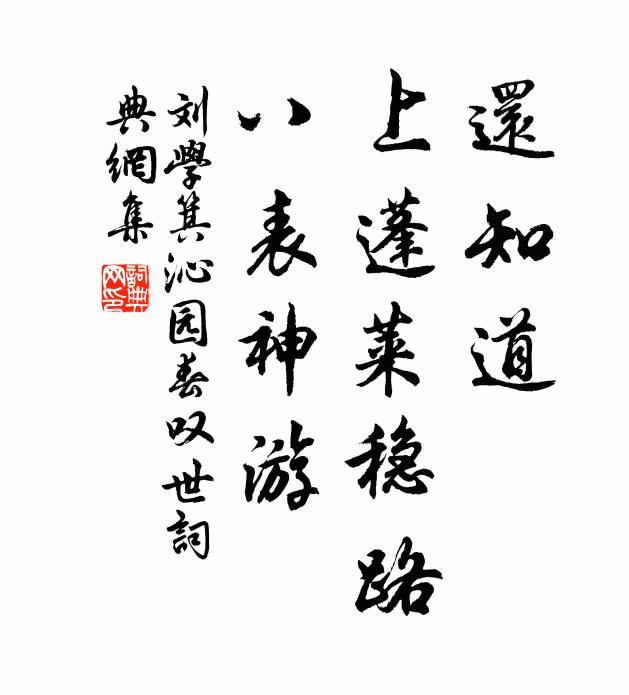 還知道
上蓬莱穏路
八表神游
刘學箕沁园春叹世詞
典網集
詞典
网印